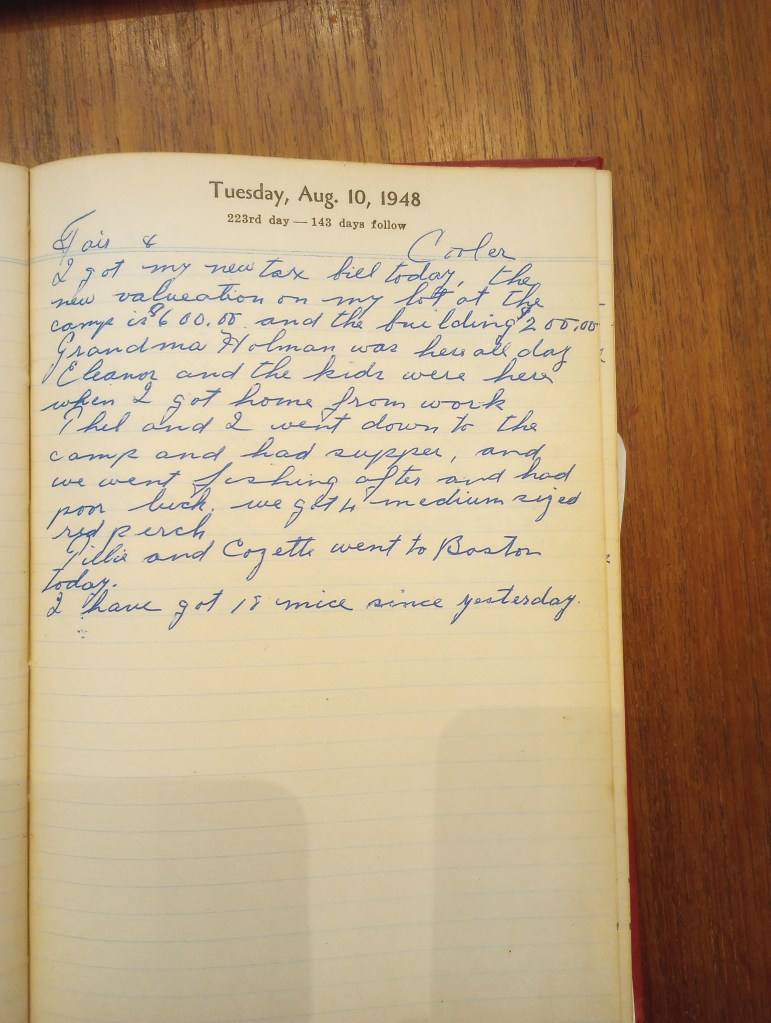 Tuesday, Aug. 10, 1948
223rd day — 143 days follow
Fair & Cooler
I got my new tax bill today, the
new valueation on my lott at the
camp is $600.00 and the building $200.00
Grandma Holman was here all day
Eleanor and the kids were here
when I got home from work
Thel and I went down to the
camp and had supper, and
we went fishing after and had
poor luck. we got 4 medium sized
red perch
Tillie and Cozette went to Boston
today.
I have got 18 mice since yesterday.